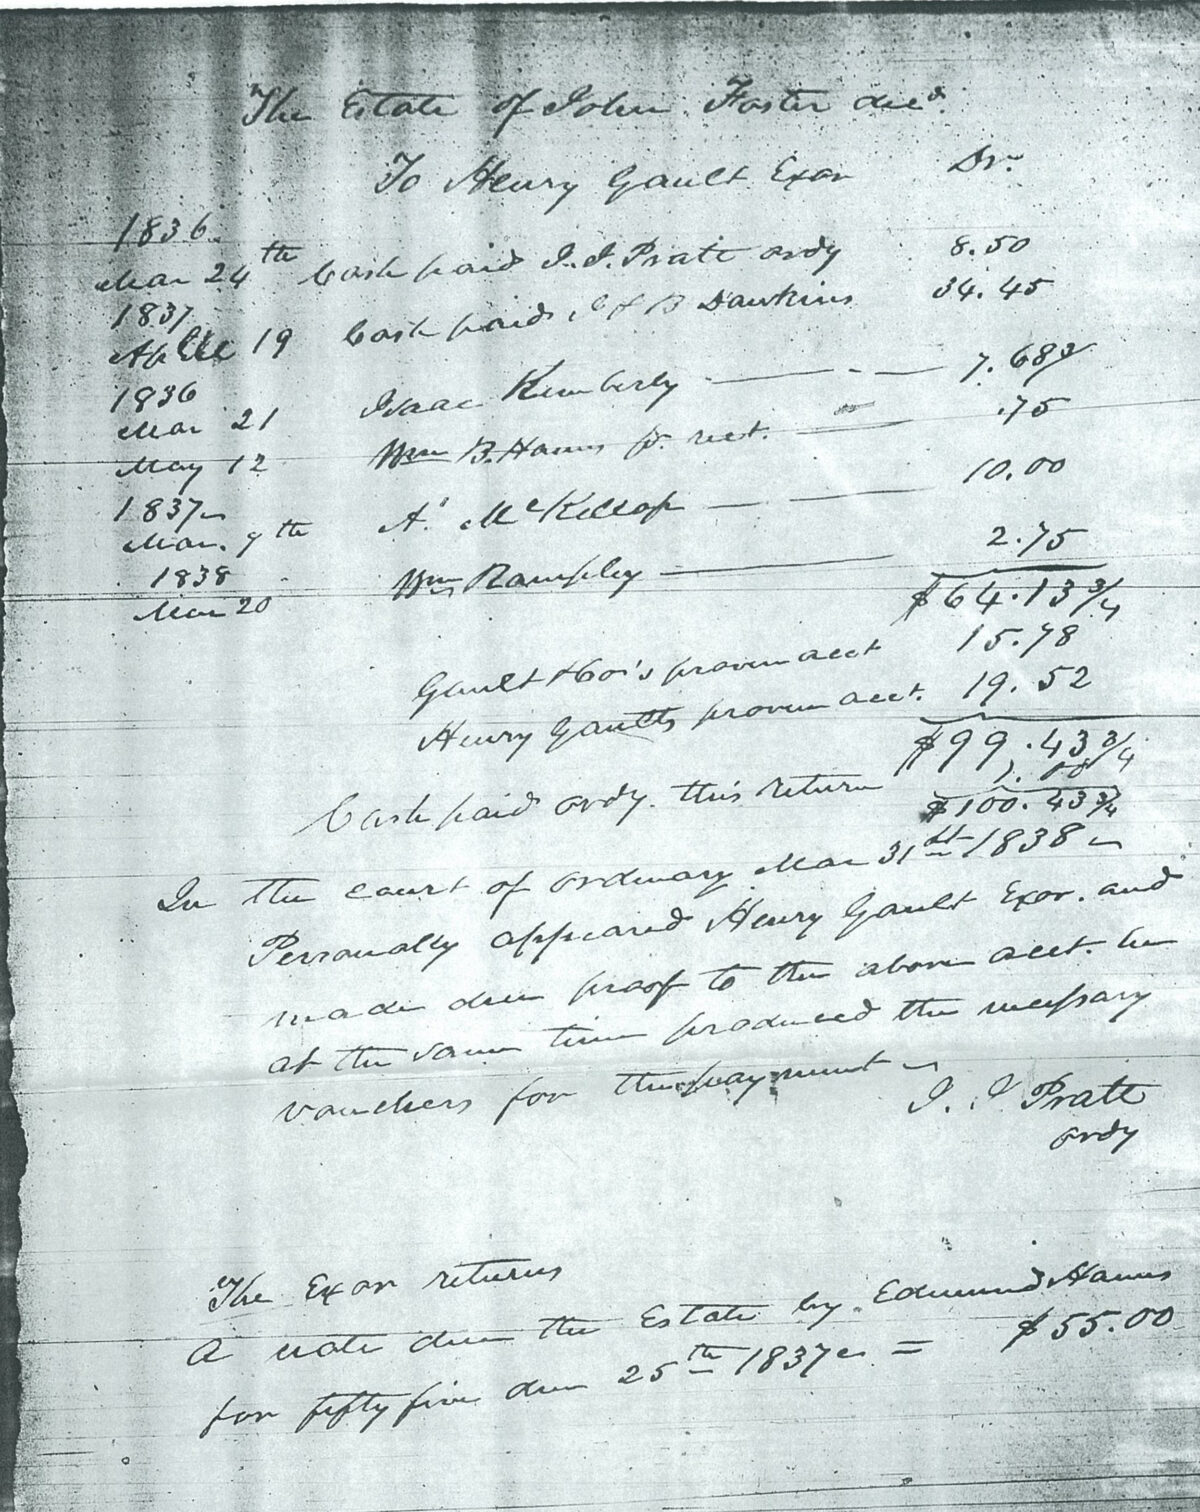 The Estate of John Foster decd.
To Henry Gault Exor Dr.
1836
Mar 24th Cash paid J. J. Pratt ordy 8.50
1837
April 19 Cash paid J & B Dawkins 34.45
1836
Mar 21 Isaac Kimberly 7.68¾
May 12 Wm B. Hames pr. rect. .75
1837
Mar. 9th A. McKillop 10.00
1838
Mar 20 Wm Rampley 2.75
$64.13 3/4
Gault & Co's proven acct 15.78
Henry Gaults proven acct. 19.52
$99.43 3/4
Cash paid ordy. this return 1.00
$100.43 3/4
In the court of ordinary Mar 31st 1838
Personally appeared Henry Gault Exor. and
made due proof to the above acct. he
at the same time produced the necessary
vouchers for the payment
J. J Pratt
ordy
The Exor returns
A note due the Estate by Edmund Hames
for fifty five due 25th 1837 = $55.00